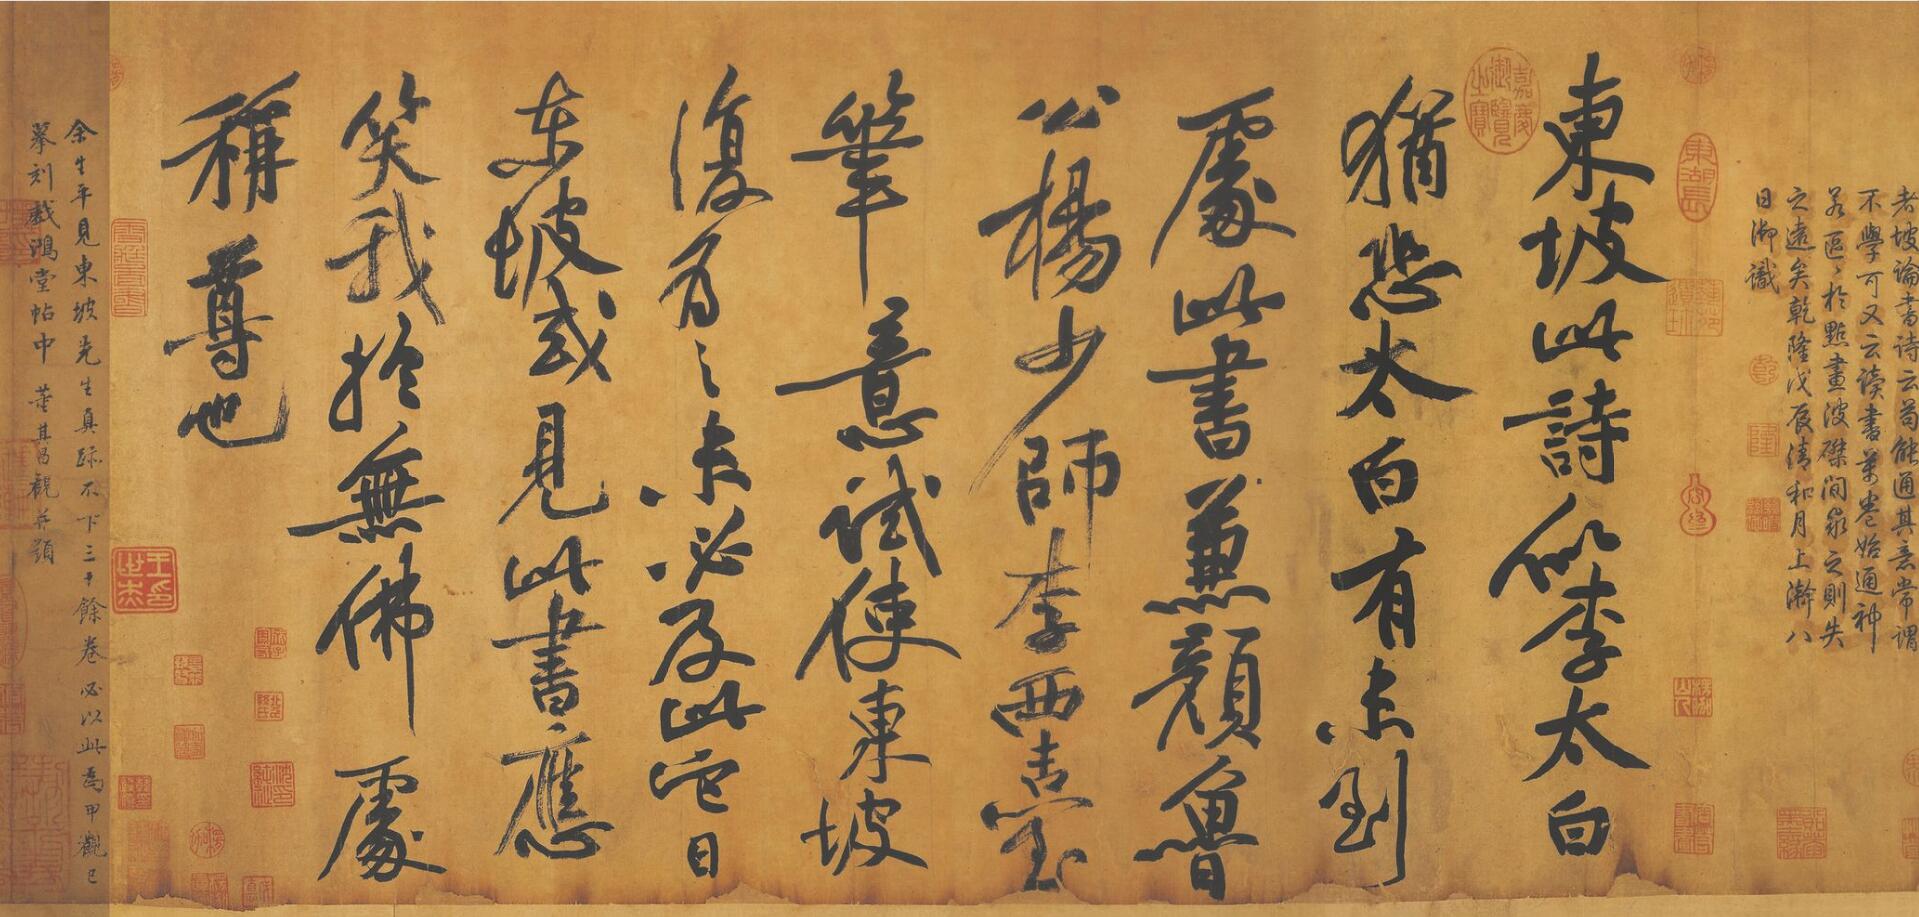 老坡論書詩云苟能通其意常謂
不學可又云讀書萬卷始通神
若區〻於點畫波磔間求之則失
之遠矣乾隆戊辰清和月上澣八
日御識
嘉慶御覽之寶
東坡此詩似李太白
猶恐太白有未到
處此書兼顏魯
公楊少師李西臺
筆意試使東坡
復為之未必及此它日
東坡或見此書應
笑我於無佛處
稱尊也
余生平見東坡先生真跡不下三十餘卷必以此為甲觀已
摹刻戲鴻堂帖中 董其昌觀并題